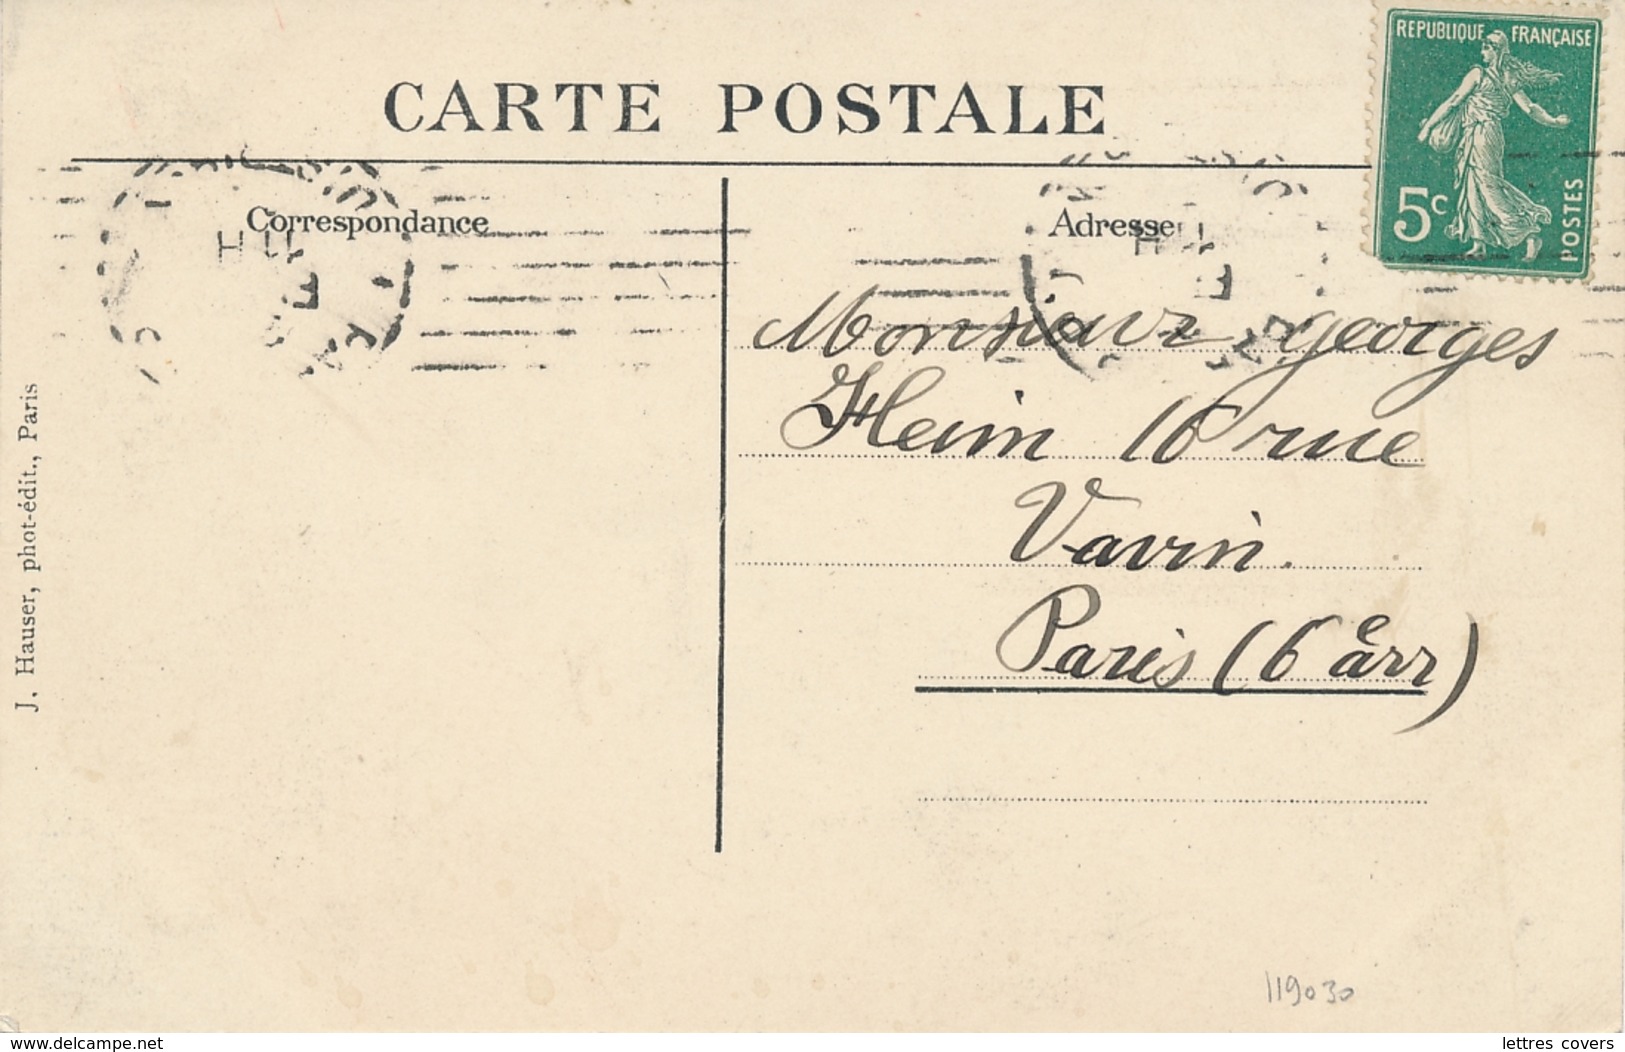 CARTE POSTALE
REPUBLIQUE FRANÇAISE
5c
POSTES
Correspondance
Adresse
Monsieur georges
Heim 16 rue
Vavin.
Paris (6 e arr)
J. Hauser, phot-édit., Paris
119030
www.delcampe.net
lettres covers